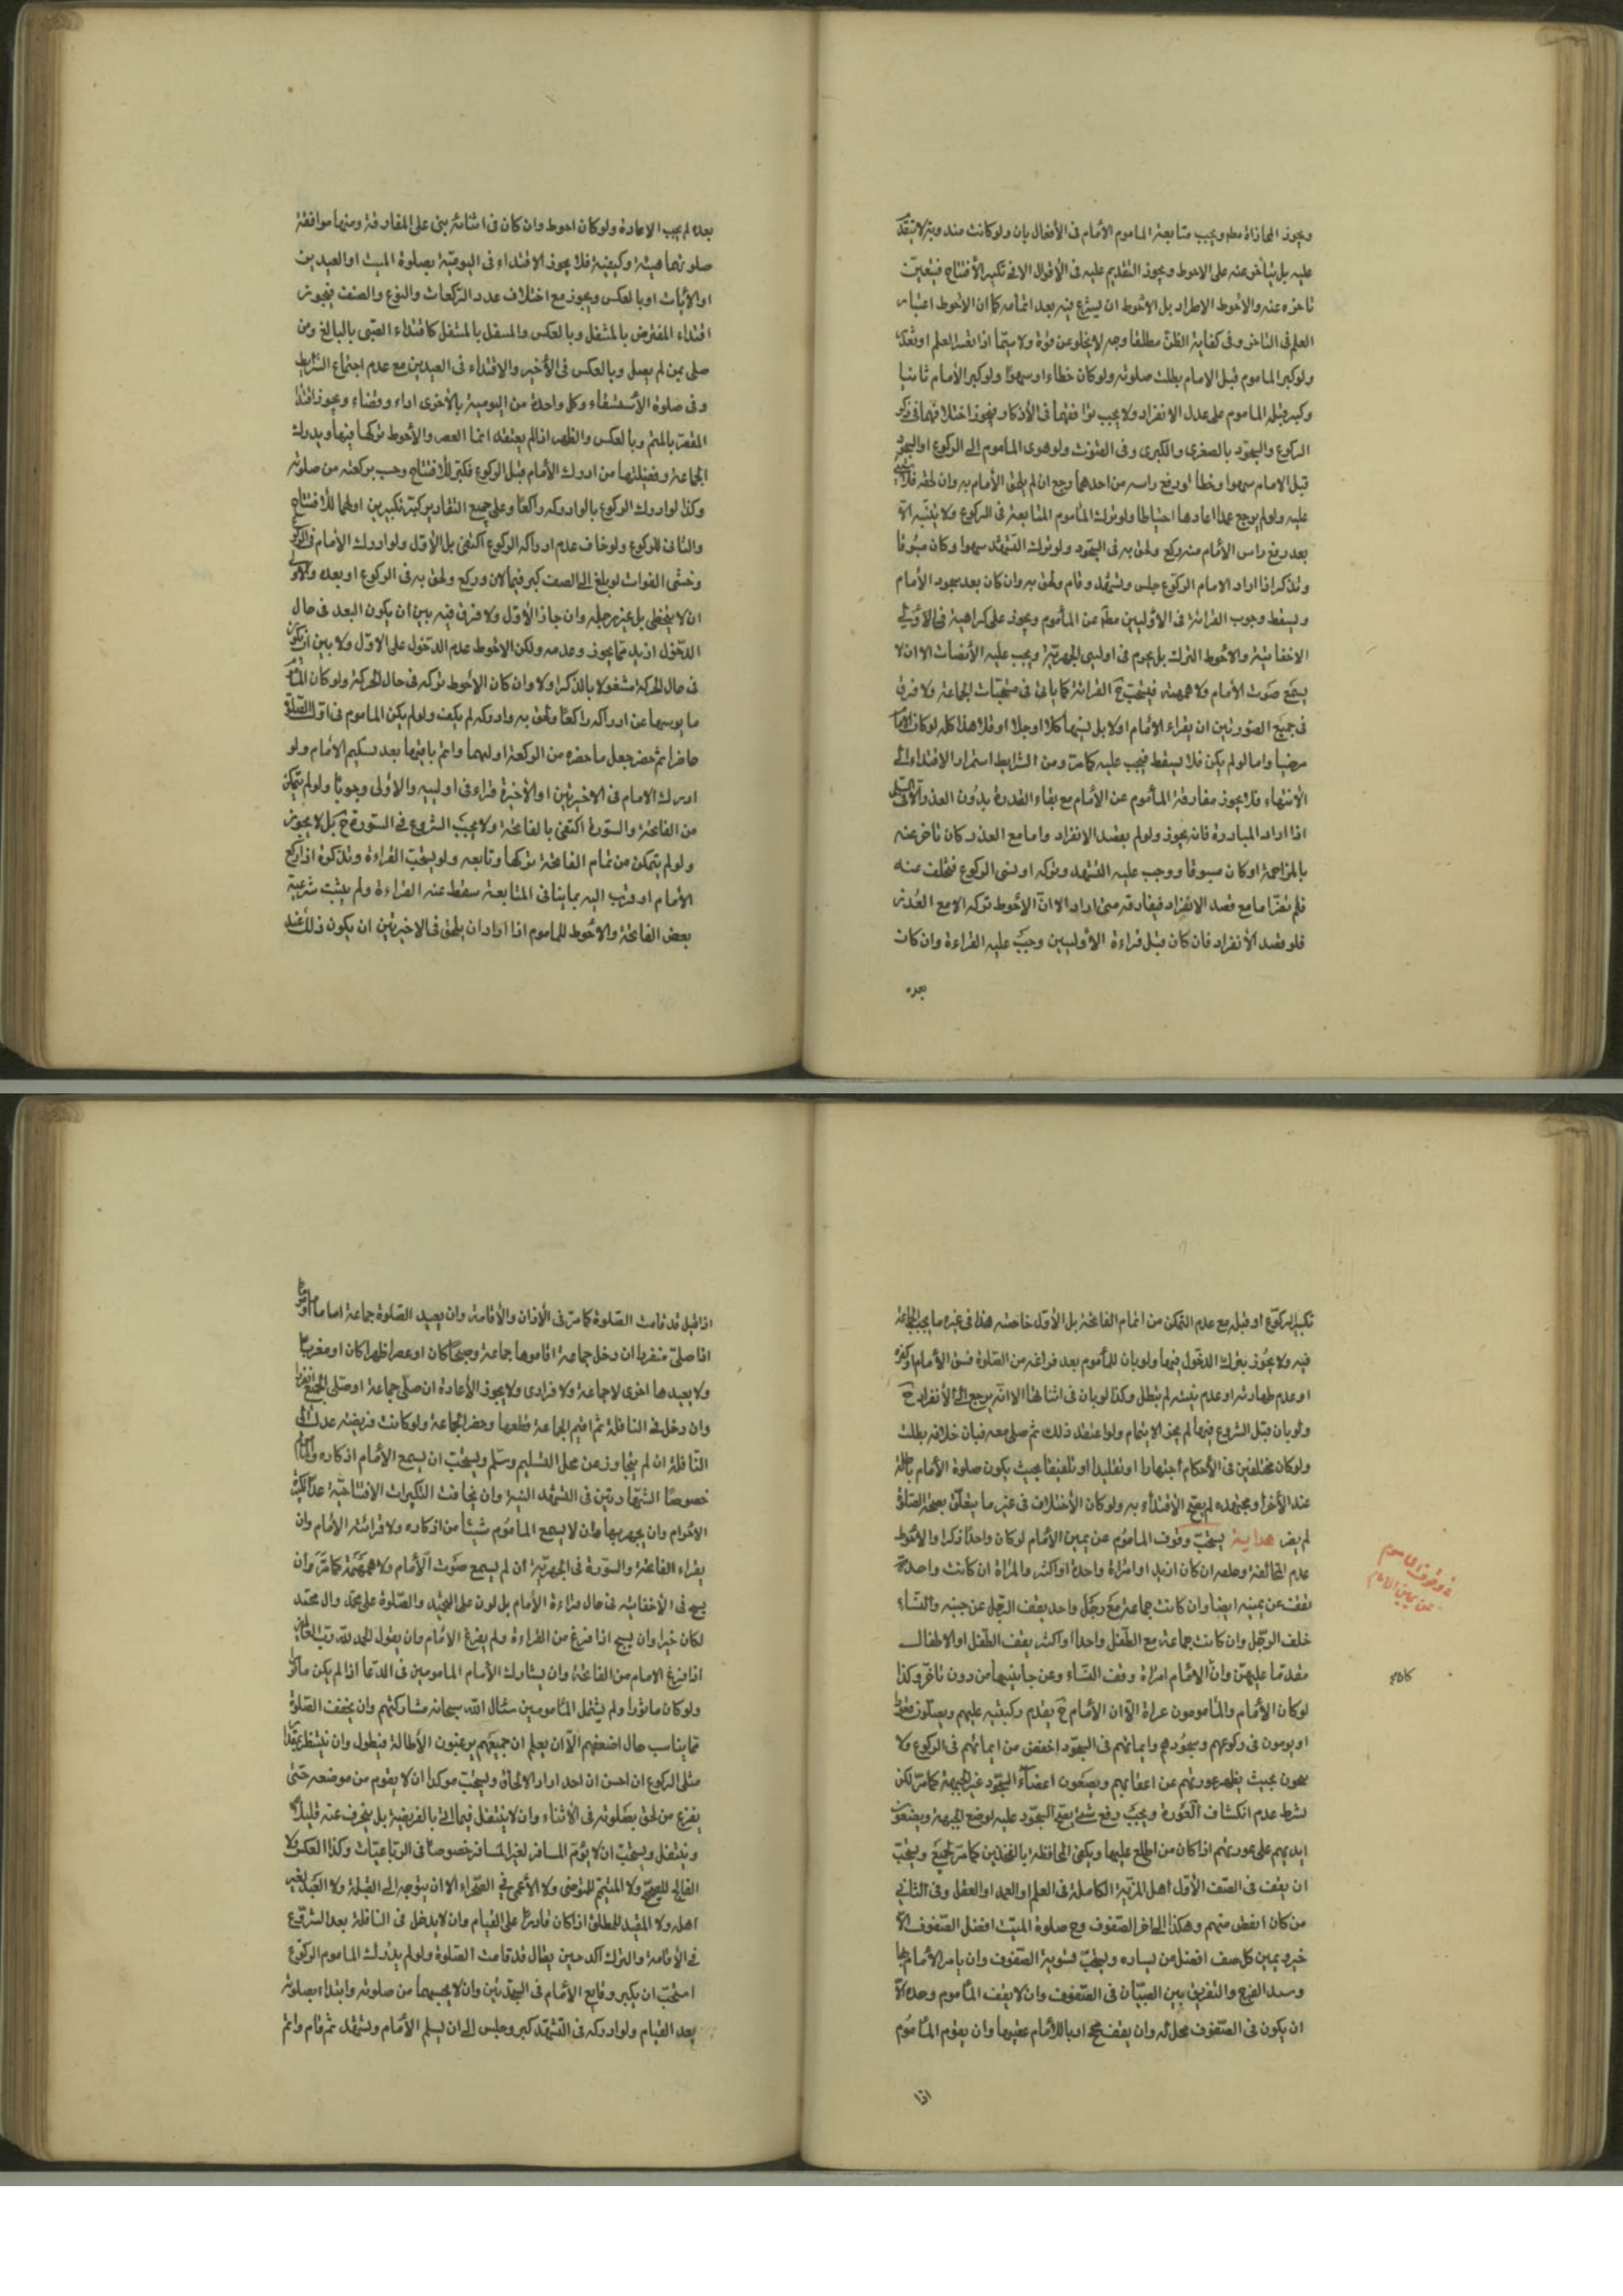 ويجوز المحاذاة معه ويجب متابعة المأموم الأمام في الأفعال بان ولو كانت مندوبة لا يتقدم
عليه بل يتأخر عنه على الاحوط ويجوز التقديم عليه في الأقوال الا في تكبير الأفتتاح فيتعين
تاخره عنه والأحوط الاطراد بل الأحوط ان يشرع فيه بعد اتمامه كما ان الأحوط اعتبار
العلم في التاخر وفي كفاية الظن مطلقا وجه لا يخلو عن قوة ولا سيما اذا تعسر العلم او تعذر
ولو كبر المأموم قبل الامام بطلت صلوته ولو كان خطاء او سهوا ولو كبر الأمام ثانيا
وكبر قبله المأموم على عدل الانفراد ولا يجب توافقهما في الأذكار فيجوز اختلافهما في ذكر
الركوع والسجود بالصغرى والكبرى وفي القنوت ولو هوى المأموم الى الركوع او السجود
قبل الامام سهوا وخطأ او رفع راسه من احدهما رجع ان لم يلحق الأمام به وان لحقه فلا شئ
عليه ولو لم يرجع عمدا اعادها احتياطا ولو ترك المأموم المتابعة في الركوع ولا يتنبه الا
بعد رفع راس الأمام منه ركع ولحق به في السجود ولو ترك التشهد سهوا وكان مسبوقا
وتذكر اذا اراد الامام الركوع جلس وتشهد وقام ولحق به وان كان بعد سجود الأمام
ويسقط وجوب القرائة في الأوليين مطه عن المأموم ويجوز على كراهية في الأوليى
الاخفاتية والأحوط الترك بل يحرم في اوليى الجهرية ويجب عليه الأنصات الا ان لا
يسمع صوت الأمام ولا همهمته فيستحب ح القرائة كما ياتى في مستحبات الجماعة ولا فرق
في جميع الصورتين ان يقراء الامام او لا بل يسهما كلا او جلا او قلا هذا كله لو كان الأمام
مرضيا واما لو لم يكن فلا يسقط فيجب عليه كما مر ومن الشرايط استمرار الاقتداء الى
الأنتهاء فلا يجوز مفارقة المأموم عن الأمام مع بقاء القدوة بدون العذر الا في التسليم
اذا اراد المبادرة فانه يجوز ولو لم يقصد الانفراد واما مع العذر كان تاخر عنه
بالمزاحمة او كان مسبوقا ووجب عليه التشهد وتركه او نسى الركوع فتخلف عنه
فلم تضر اما مع قصد الانفراد فيفارقه متى اراد الا ان الأحوط تركه الا مع العذر
فلو قصد الأنفراد فان كان قبل قراءة الأوليين وجب عليه القراءة وان كانت
بعده
بعده لم يجب الاعادة ولو كان احوط وان كان في اثنائه بنى على المفارقة ومنها موافقة
صلوتهما هيئة وكيفية فلا يجوز الاقتداء في اليومية بصلوة الميت او العيدين
او الأيات او بالعكس ويجوز مع اختلاف عدد الركعات والنوع والصنف فيجوز
اقتداء المفترض بالمتنفل وبالعكس والمتنفل بالمتنفل كاقتداء الصبى بالبالغ ومن
صلى بمن لم يصل وبالعكس في الأخير والاقتداء في العيدين مع عدم اجتماع الشرايط
وفي صلوة الأستسقاء وكل واحدة من اليومية بالأخرى اداء وقضاء ويجوز اقتداء
المقصر بالمتم وبالعكس والظهر اذا لم يعتقد انها العصر والأحوط تركها فيهما ويدرك
الجماعة وفضيلتها من ادرك الأمام قبل الركوع فكبر للأفتتاح وحسب بركعته من صلوته
وكذا لو ادرك الركوع بالوادركه راكعا وعلى جميع التقادير كبر تكبيرين اولهما للأفتتاح
والثانى للركوع ولو خاف عدم ادراكه الركوع اكتفى بل الأول ولو ادرك الأمام في الركوع
وخشى الفوات لو بلغ الى الصف كبر فيما كان وركع ولحق به في الركوع او بعده والأولى
ان لا يتخطى بل يجر رجليه وان جاز الأول ولا فرق فيه بين ان يكون البعد في حال
الدخول ازيد مما يجوز وعدمه ولكن الاحوط عدم الدخول على الاول ولا بين ان يكون
في حال الحركة مشغولا بالذكر او لا وان كان الأحوط تركه في حال الحركة ولو كان المأموم
مايوسا عن ادراكه راكعا ولحق به وادركه لم يكف ولو لم يكن المأموم في اول الصلوة
حاضرا ثم حضر جعل ما حضره من الركعة اوليهما واتم باقيها بعد تسليم الامام ولو
ادرك الامام في الاخيرتين او الأخيرة قراء في اولييه والأولى وجوبا ولو لم يتمكن
من الفاتحة والسورة اكتفى بالفاتحة ولا يجب الشروع في السورة ح بل لا يجوز
ولو لم يتمكن من تمام الفاتحة تركها وتابعه ولو يستحب القراءة وتذكره اذا ركع
الأمام او قرب اليه بما ينافى المتابعة سقط عنه القراءة ولم يثبت شرعية
بعض الفاتحة والأحوط للمأموم اذا اراد ان يلحق في الاخيرتين ان يكون ذلك عند
تكبير الركوع او قبله مع عدم التمكن من اتمام الفاتحة بل الأول خاصة هذا في غير ما يجب الجماعة
فيه ولا يجوز بترك الدخول فيها ولو بان للمأموم بعد فراغه من الصلوة فسق الأمام او كفره
او عدم طهارته او عدم نيته لم تبطل وكذا لو بان في اثنائها الا انه يرجع الى الأنفراد ح
ولو بان قبل الشروع فيها لم يجز الايتمام ولو اعتقد ذلك ثم صلى معه فبان خلافه بطلت
ولو كان مختلفين في الأحكام اجتهادا او تقليدا او تلفيقا بحيث يكون صلوة الأمام باطلة
عند الأخر او مجتهده لم يصح الأقتداء به ولو كان الأختلاف في غير ما يتعلق بصحة الصلوة
لم يضر هداية يستحب وقوف المأموم عن يمين الأمام لو كان واحدا ذكرا والأحوط
عدم المخالفة وخلفه ان كان ازيد او امراة واحدة او اكثر والمراة ان كانت واحدة
تقف عن يمينه ايضا وان كانت جماعة مع رجل واحد يقف الرجل عن جنبه والنساء
خلف الرجل وان كانت جماعة مع الطفل واحدا او اكثر يقف الطفل او الاطفال
مقدما عليهن وان الامام امراة وقف النساء وعن جانبيها من دون تاخر وكذا
لو كان الأمام والمأمومون عراة الا ان الأمام ح يتقدم ركبتيه عليهم ويصلون قعودا
او يومون في ركوعهم وسجودهم وايمائهم في السجود اخفض من ايمائهم في الركوع ولا
يحون بحيث يظهر عورتهم عن اعقابهم ويضعون اعضاء السجود غير الجبهة كما مر لكن
بشرط عدم انكشاف العورة ويجب رفع شئ يصح السجود عليه لوضع الجبهة ويضعون
ايديهم على عورتهم اذا كان من اطلع عليها ويكفى المحافظة بالفخذين كما مر لجميع ويستحب
ان يقف في الصف الأول اهل المزية الكاملة في العلم او العمل او العقل وفي الثانى
من كان انقص منهم وهكذا الى اخر الصفوف وح صلوة الميت افضل الصفوف الأ
خير ويمين كل صف افضل من يساره ويستحب تسوية الصفوف وان يامر الأمام بها
وسد الفرج والتفريق بين الصبيان في الصفوف وان لا يقف المأموم وحده الا
ان يكون في الصفوف محل له وان يقف بحد ابا للأمام عقيبها وان يقوم المأموم
في وقوف المأموم
عن يمين الامام
اذا
اذا قيل قد قامت الصلوة كما مر في الأذان والأقامة وان يعيد الصلوة جماعة اماما او مأموما
اذا صلى منفردا ان دخل جماعة اقاموها جماعة وصبحا كان او عصرا ظهرا كان او مغربا
ولا يعيدها اخرى لا جماعة ولا فرادى ولا يجوز الأعادة ان صلى جماعة او صلى الجميع
وان دخل في النافلة ثم اقيم الجماعة قطعها وحضر الجماعة ولو كانت فريضة عدل الى
النافلة ان لم يتجاوز عن محل التسليم وسلم ويستحب ان يسمع الأمام اذكاره
خصوصا الشهادتين في التشهد الشبر وان يخافت التكبيرات الافتتاحية عدا تكبيرة
الأحرام وان يجهر بها وان لا يسمع المأموم شيئا من اذكاره ولا قرائة الأمام وان
يقراء الفاتحة والسورة في الجهرية ان لم يسمع صوت الأمام ولا همهمة كما مر وان
يسبح في الأخفاتية في حال قراءة الأمام بل لو ن على التحميد والصلوة على محمد وال محمد
لكان خيرا وان يسبح اذا فرغ من القراءة ولم يفرغ الأمام وان يقول الحمد لله رب العالمين
اذا فرغ الامام من الفاتحة وان يشارك الأمام المأمومين في الدعا اذا لم يكن ماثورا
ولو كان ماثورا ولم يشمل المأمومين سئال الله سبحانه مشاركتهم وان يخفف الصلوة
بما يناسب حال اضعفهم الا ان يعلم ان جميعهم يرغبون الأطالة فيطول وان ينتظر
مثلى الركوع ان احس ان احد اراد الالحاق ويستحب مؤكدا ان لا يقوم من موضعه حتى
يفرغ من لحق بصلوته في الأثناء وان لا يتنفل فيما اتى بالفريضة بل ينحرف عنه قليلا
ويتنفل ويستحب ان لا يؤم المسافر لغير المسافر خصوصا في الرباعيات وكذا العكس ولا
الفالج للصحيح ولا المتيمم للمتوضى ولا الأعمى في الصحراء الا ان يتوجه الى القبلة ولا العبد لغير
اهله ولا المقيد للمطلق اذا كان قادرا على القيام وان لا يدخل في النافلة بعد الشروع
في الأقامة والترك اكد حين يقال قد قامت الصلوة ولو لم يدرك المأموم الركوع
استحب ان يكبر وتابع الأمام في السجدتين وان لا يحسبهما من صلوته وابتداء بصلوته
بعد القيام ولو ادركه في التشهد كبر وجلس الى ان يسلم الأمام وتشهد ثم قام واتم